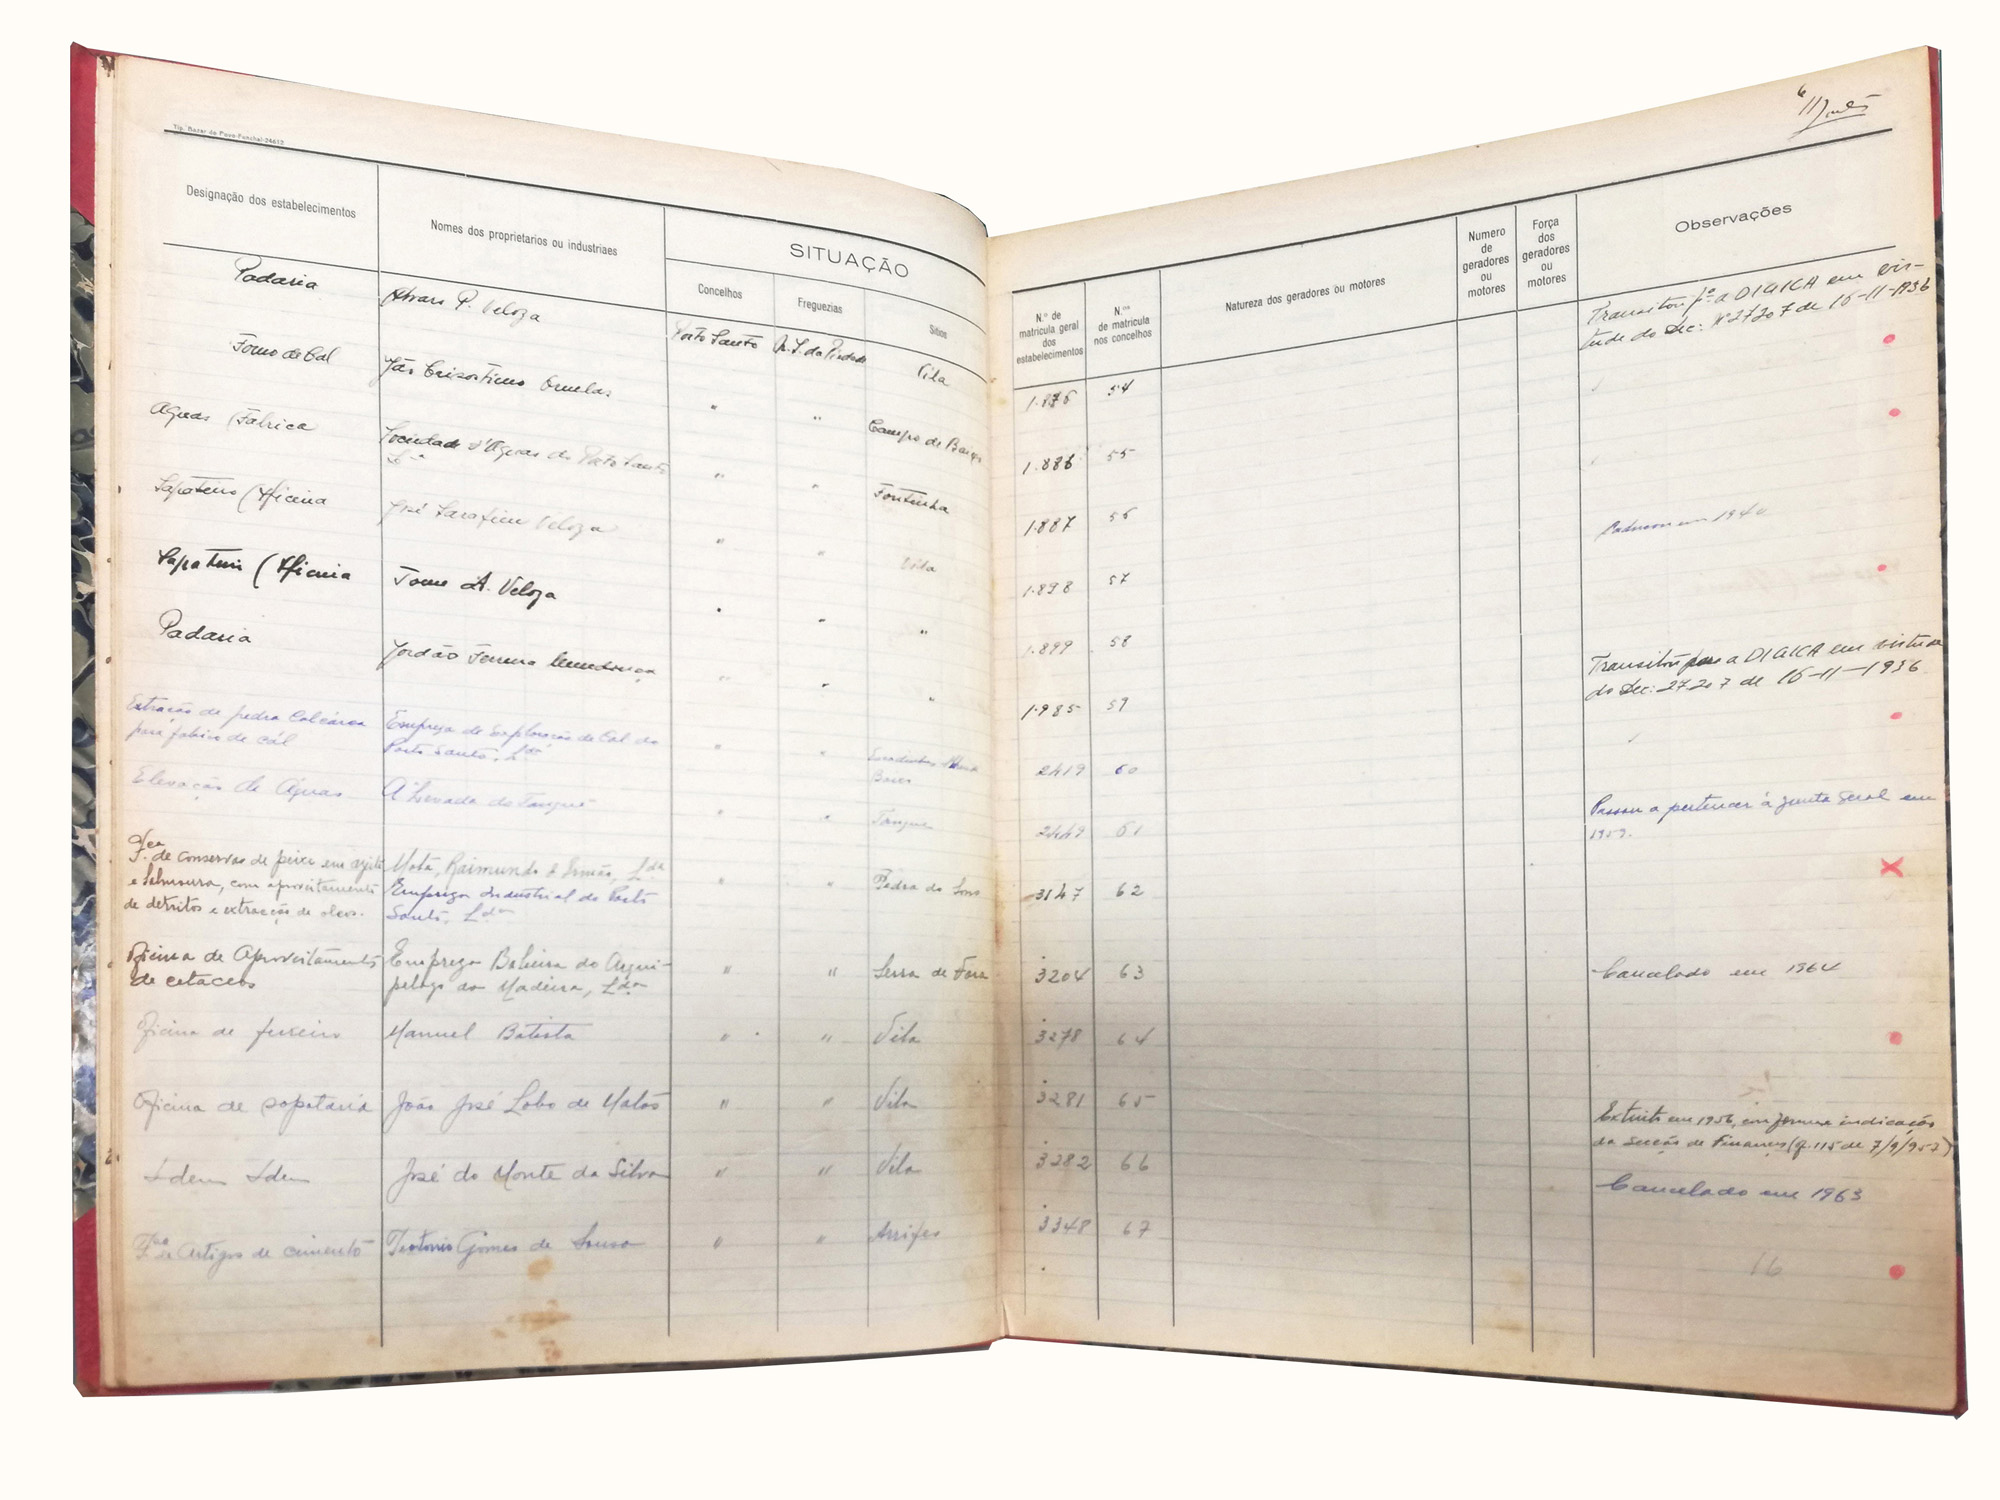 Tip. Bazar do Povo-Funchal-24612
Designação dos estabelecimentos
Nomes dos proprietarios ou industriaes
SITUAÇÃO
Concelhos
Freguezias
Sitios
Padaria
Alvaro P. Veloza
Porto Santo
N. S. da Piedade
Vila
Forno de Cal
João Crisostimo Ornelas
"
"
Campo de Baixo
Aguas (Fabrica
Sociedade d'Aguas do Porto Santo
Lda
"
"
Fontinha
Sapateiro (Oficina
José Sarafim Veloza
"
"
Vila
Sapateiro (Oficina
Tome A. Veloza
"
"
"
Padaria
Jordão Ferreira Mendonça
"
"
"
Extração de pedra Calcárea
para fabrico de cál
Empreza de Exploração de Cal do
Porto Santo, Lda
"
"
Elevação de Aguas
A Levada do Tanque
"
"
Tanque
F.ca de conservas de peixe em azeite
e salmoura, com aproveitamento
de detritos e extracção de oleos.
Mota, Raimundo & Irmão, L.da
Empreza Industrial do Porto
Santo, L.da
"
"
Pedras do
Oficina de Aproveitamento
de cetaceos
Empreza Baleeira do Arqui-
pelago da Madeira, L.da
"
"
Serra de Fora
Oficina de
Manuel Batista
"
"
Vila
Oficina de sapataria
João José Lobo de Matos
"
"
Vila
Idem Idem
José do Monte da Silva
"
"
Vila
F.ca de Artigos de cimento
Teotonio Gomes de Sousa
"
"
Arrifes
6
N.º de
matricula geral
dos
estabelecimentos
N.os
de matricula
nos concelhos
Natureza dos geradores ou motores
Numero
de
geradores
ou
motores
Força
dos
geradores
ou
motores
Observações
Transitou p.ª a DIGICA em vir-
tude do Dec: Nº 27207 de 16-11-1936
1.876 54
1.886 55
1.887 56
Caducou em 1940
1.898 57
1.899 58
Transitou para a DIGICA em virtude
do Dec: 27207 de 16-11-1936
1.985 59
2419 60
Passou a pertencer á Junta Geral em
1959.
2449 61
3147 62
3204 63
Cancelado em 1964
3278 64
3281 65
Extinto em 1956, conforme indicação
da Secção de Finanças (of. 115 de 7/9/957)
3282 66
Cancelado em 1963
3348 67
16